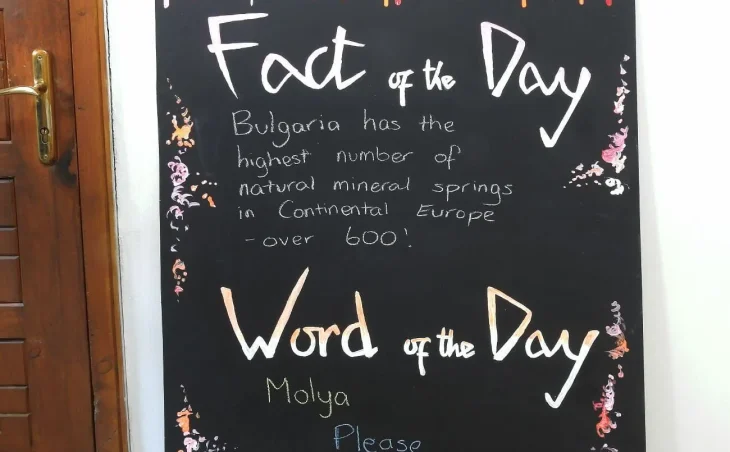 Fact of the Day
Bulgaria has the
highest number of
natural mineral springs
in Continental Europe
- over 600!
Word of the Day
Molya
Please